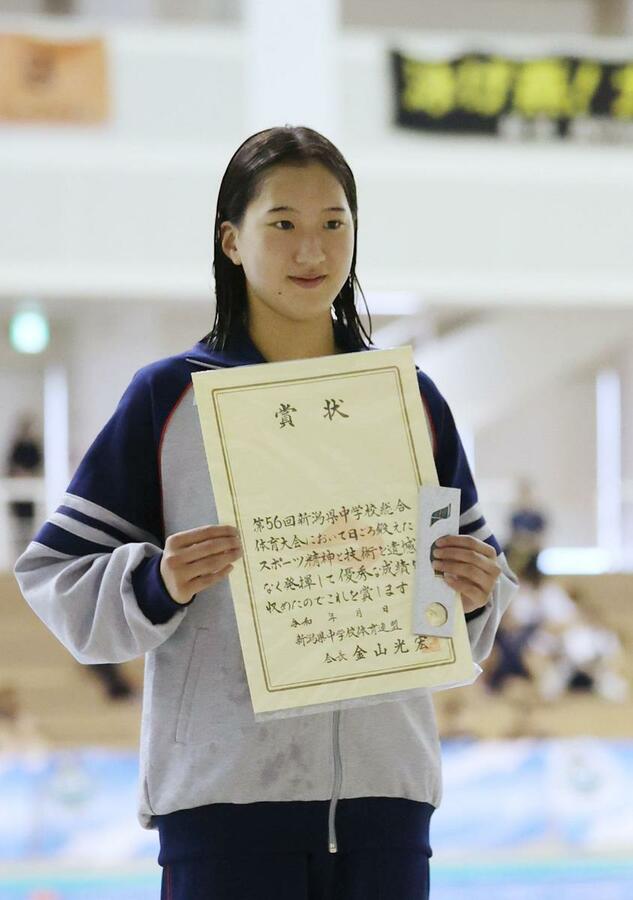 賞状
第56回新潟県中学校総合
体育大会において日ごろ鍛えた
スポーツ精神と技術を遺憾
なく発揮して優秀な成績を
収めたのでこれを賞します
令和 年 月 日
新潟県中学校体育連盟
会長 金山光宏